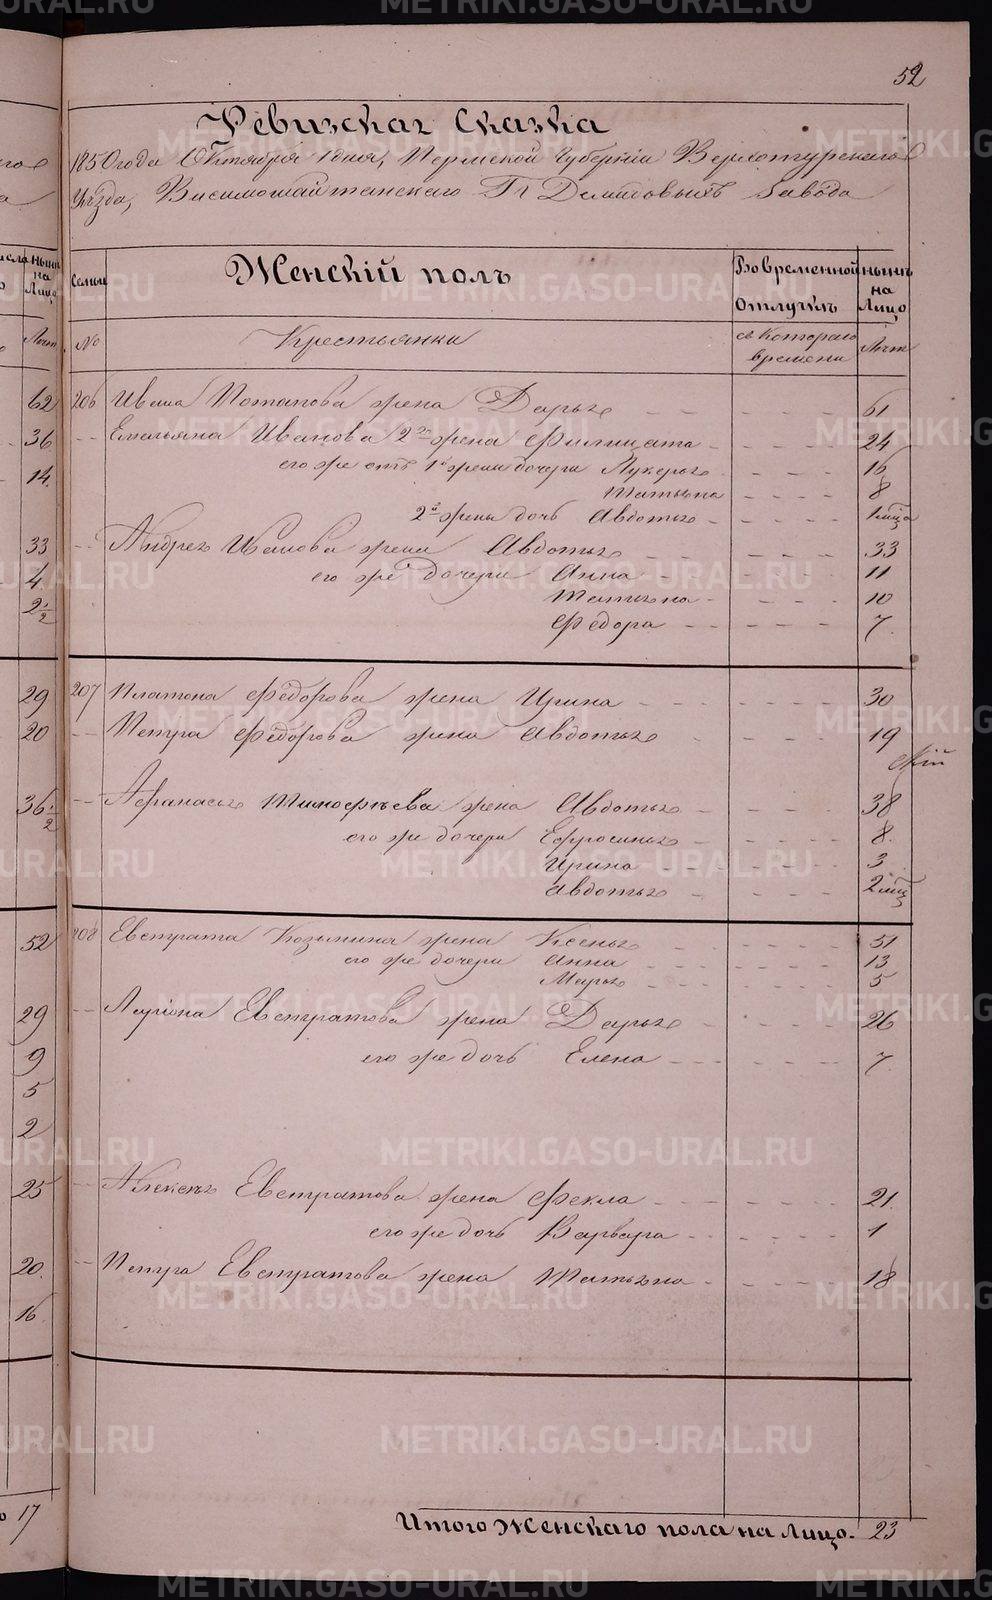 52
Ревизская Сказка
1850 года Октября 1 дня, Пермской Губернiи Верхотурскаго
Уѣзда, Висимошайтанскаго Гг Демидовыхъ Завода
Семьи
Женскiй полъ
Во временной Отлучкѣ
нынѣ на Лицо
№
Крестьянки
съ Котораго времени
Лѣта
62 206 Ивана Потапова жена Дарья 61
36 Емельяна Иванова 2я жена Филицата 24
14. его же отъ 1й жены дочери Лукерья 16
Татьяна 8
2й жены дочь Авдотья 1 мѣсца
33 Андрея Иванова жена Авдотья 33
4. его же дочери Анна 11
2 1/2 Татьяна 10
Федора 7.
29 207 Платона Федорова жена Ирина 30
20 Петра Федорова жена Авдотья 19
36 1/2 Афанасья Тимофѣева жена Авдотья 38
его же дочери Ефросинья 8.
Ирина 3
Авдотья 2 мѣц
52 208 Евстрата Козьмина жена Ксенья 51
его же дочери Анна 13
Марья 5
29 Ларiона Евстратова жена Дарья 26
9 его же дочь Елена 7.
5
2
25 Алексѣя Евстратова жена Фекла 21.
его же дочь Варвара 1
20. Петра Евстратова жена Татьяна 18
16
17
Итого Женскаго пола на Лицо. 23
METRIKI.GASO-URAL.RU